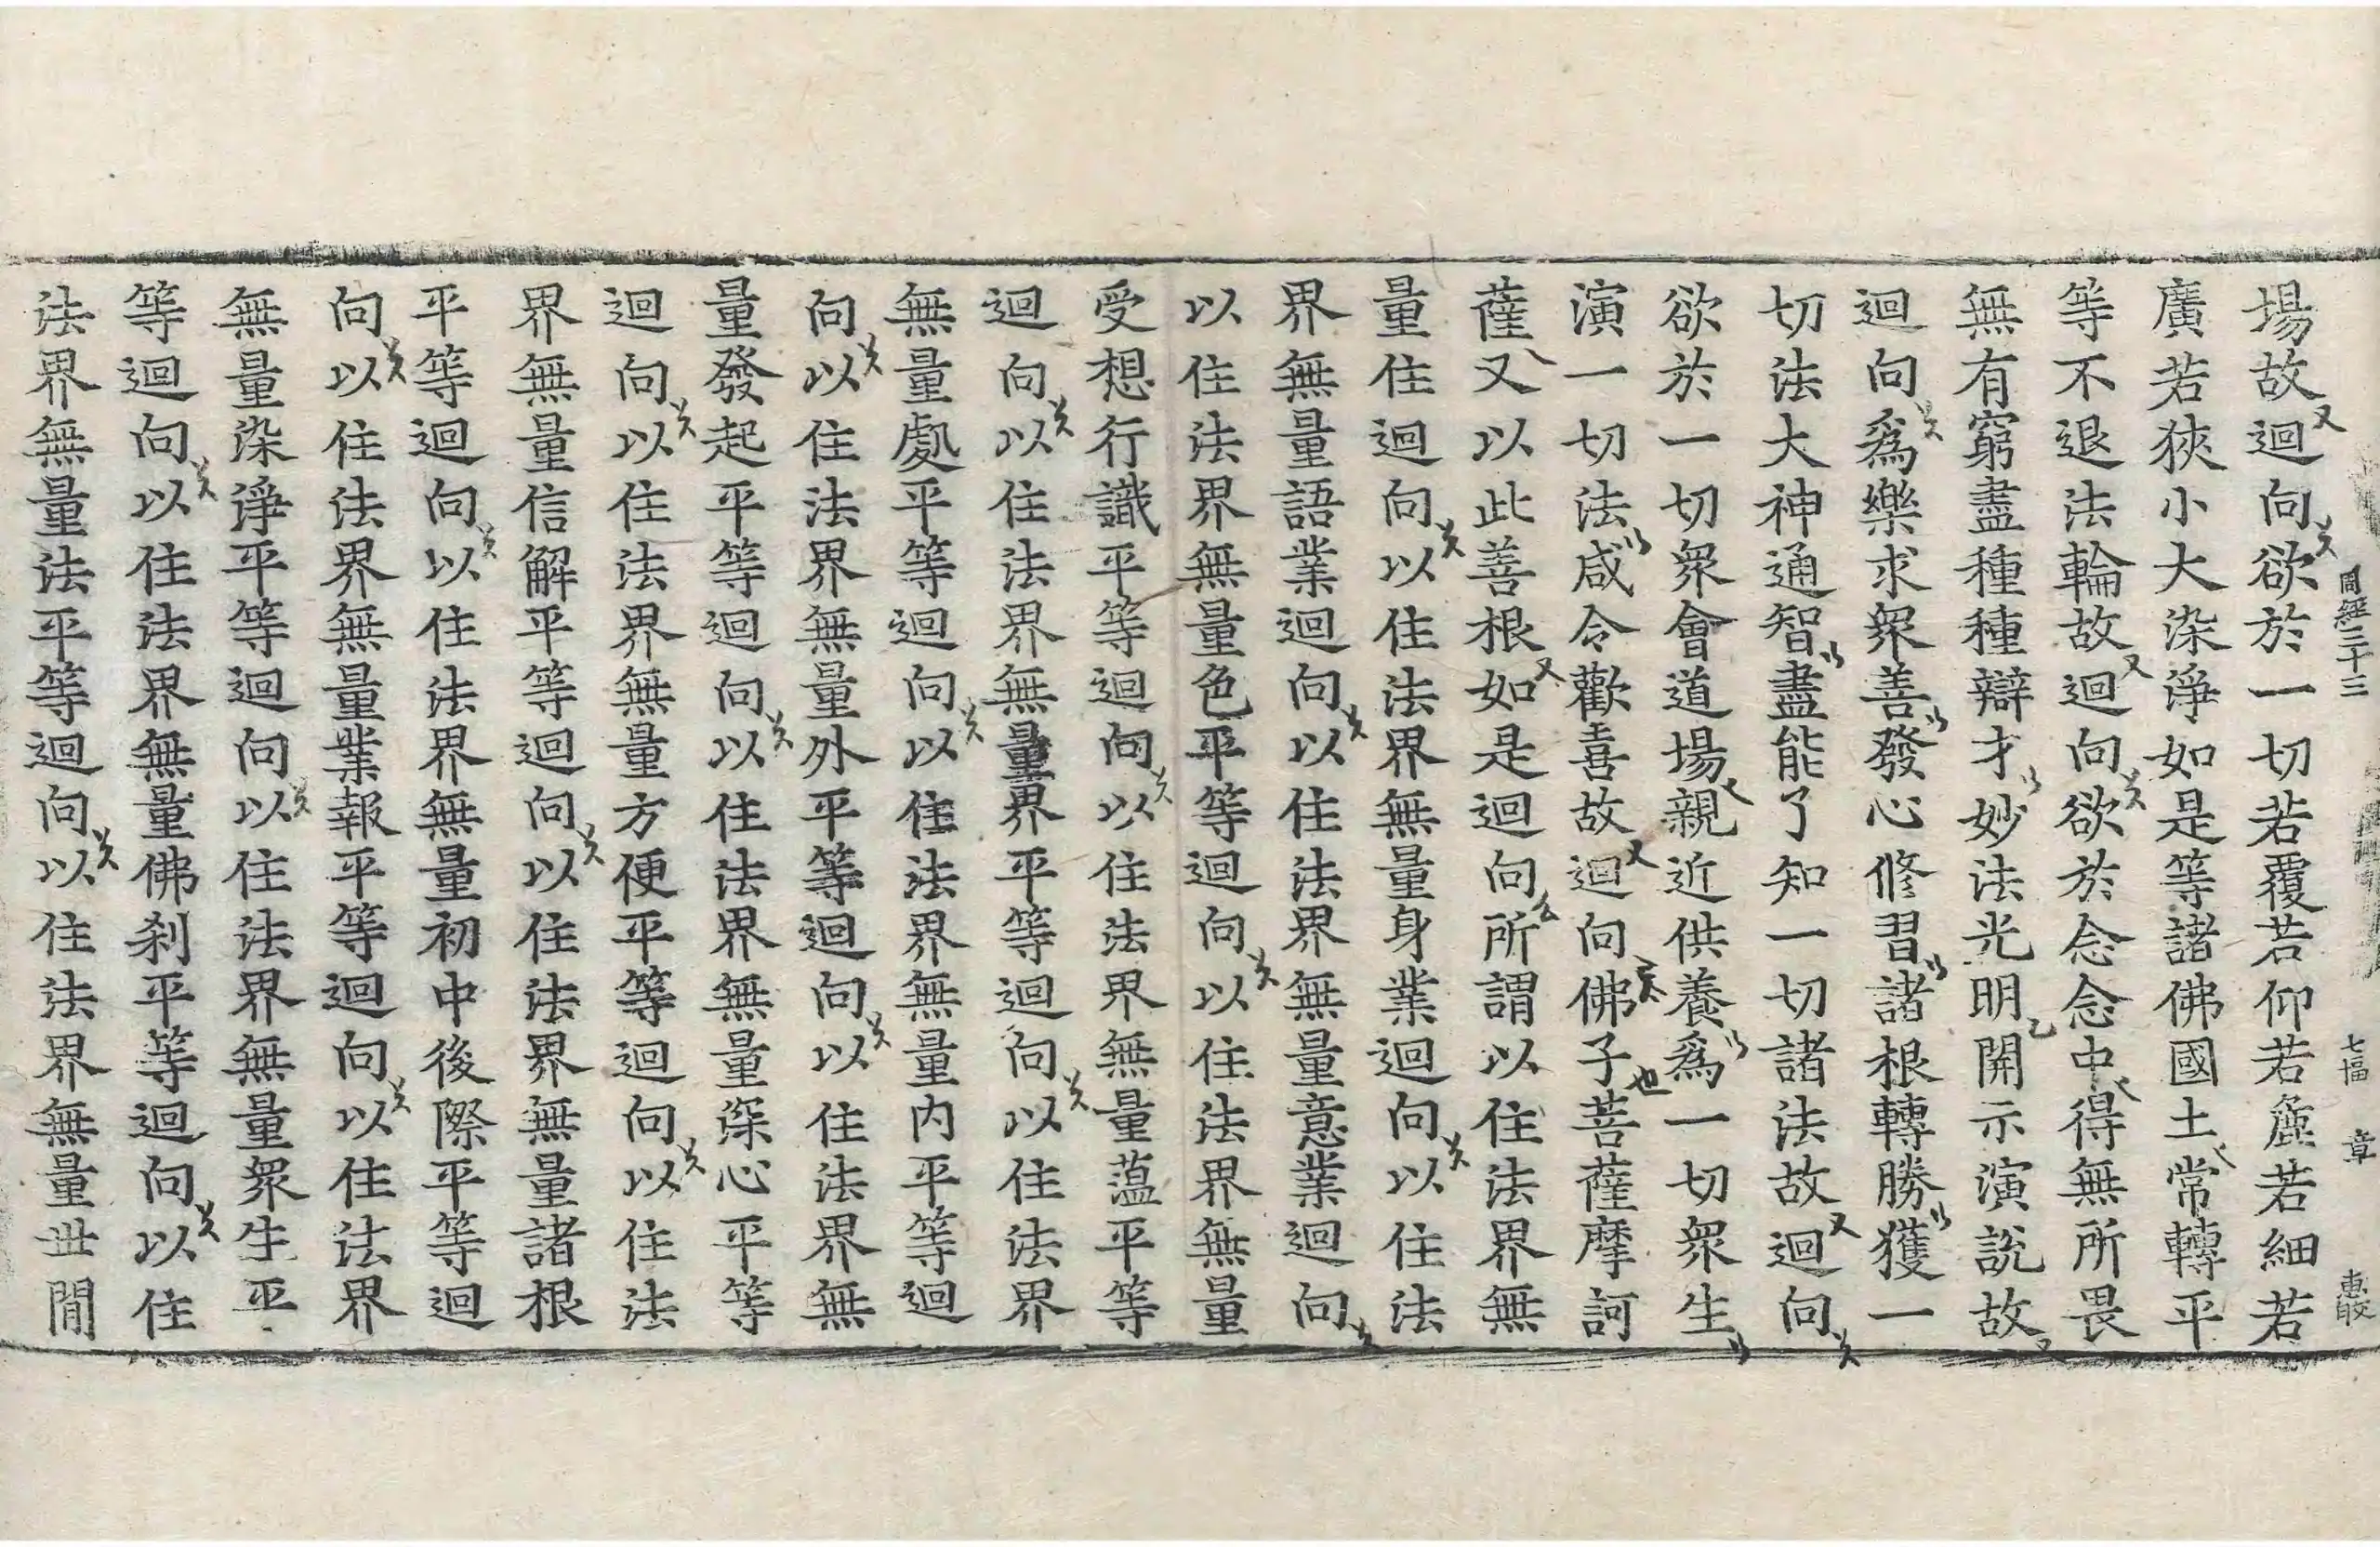 周經三十三 七幅 章
場故迴向欲於一切若覆若仰若麁若細若
廣若狹小大染淨如是等諸佛國土常轉平
等不退法輪故迴向欲於念念中得無所畏
無有窮盡種種辯才妙法光明開示演說故
迴向爲樂求衆善發心修習諸根轉勝獲一
切法大神通智盡能了知一切諸法故迴向
欲於一切衆會道場親近供養爲一切衆生
演一切法咸令歡喜故迴向佛子菩薩摩訶
薩又以此善根如是迴向所謂以住法界無
量住迴向以住法界無量身業迴向以住法
界無量語業迴向以住法界無量意業迴向
以住法界無量色平等迴向以住法界無量
受想行識平等迴向以住法界無量薀平等
迴向以住法界無量界平等迴向以住法界
無量處平等迴向以住法界無量内平等迴
向以住法界無量外平等迴向以住法界無
量發起平等迴向以住法界無量深心平等
迴向以住法界無量方便平等迴向以住法
界無量信解平等迴向以住法界無量諸根
平等迴向以住法界無量初中後際平等迴
向以住法界無量業報平等迴向以住法界
無量染淨平等迴向以住法界無量衆生平
等迴向以住法界無量佛刹平等迴向以住
法界無量法平等迴向以住法界無量世間